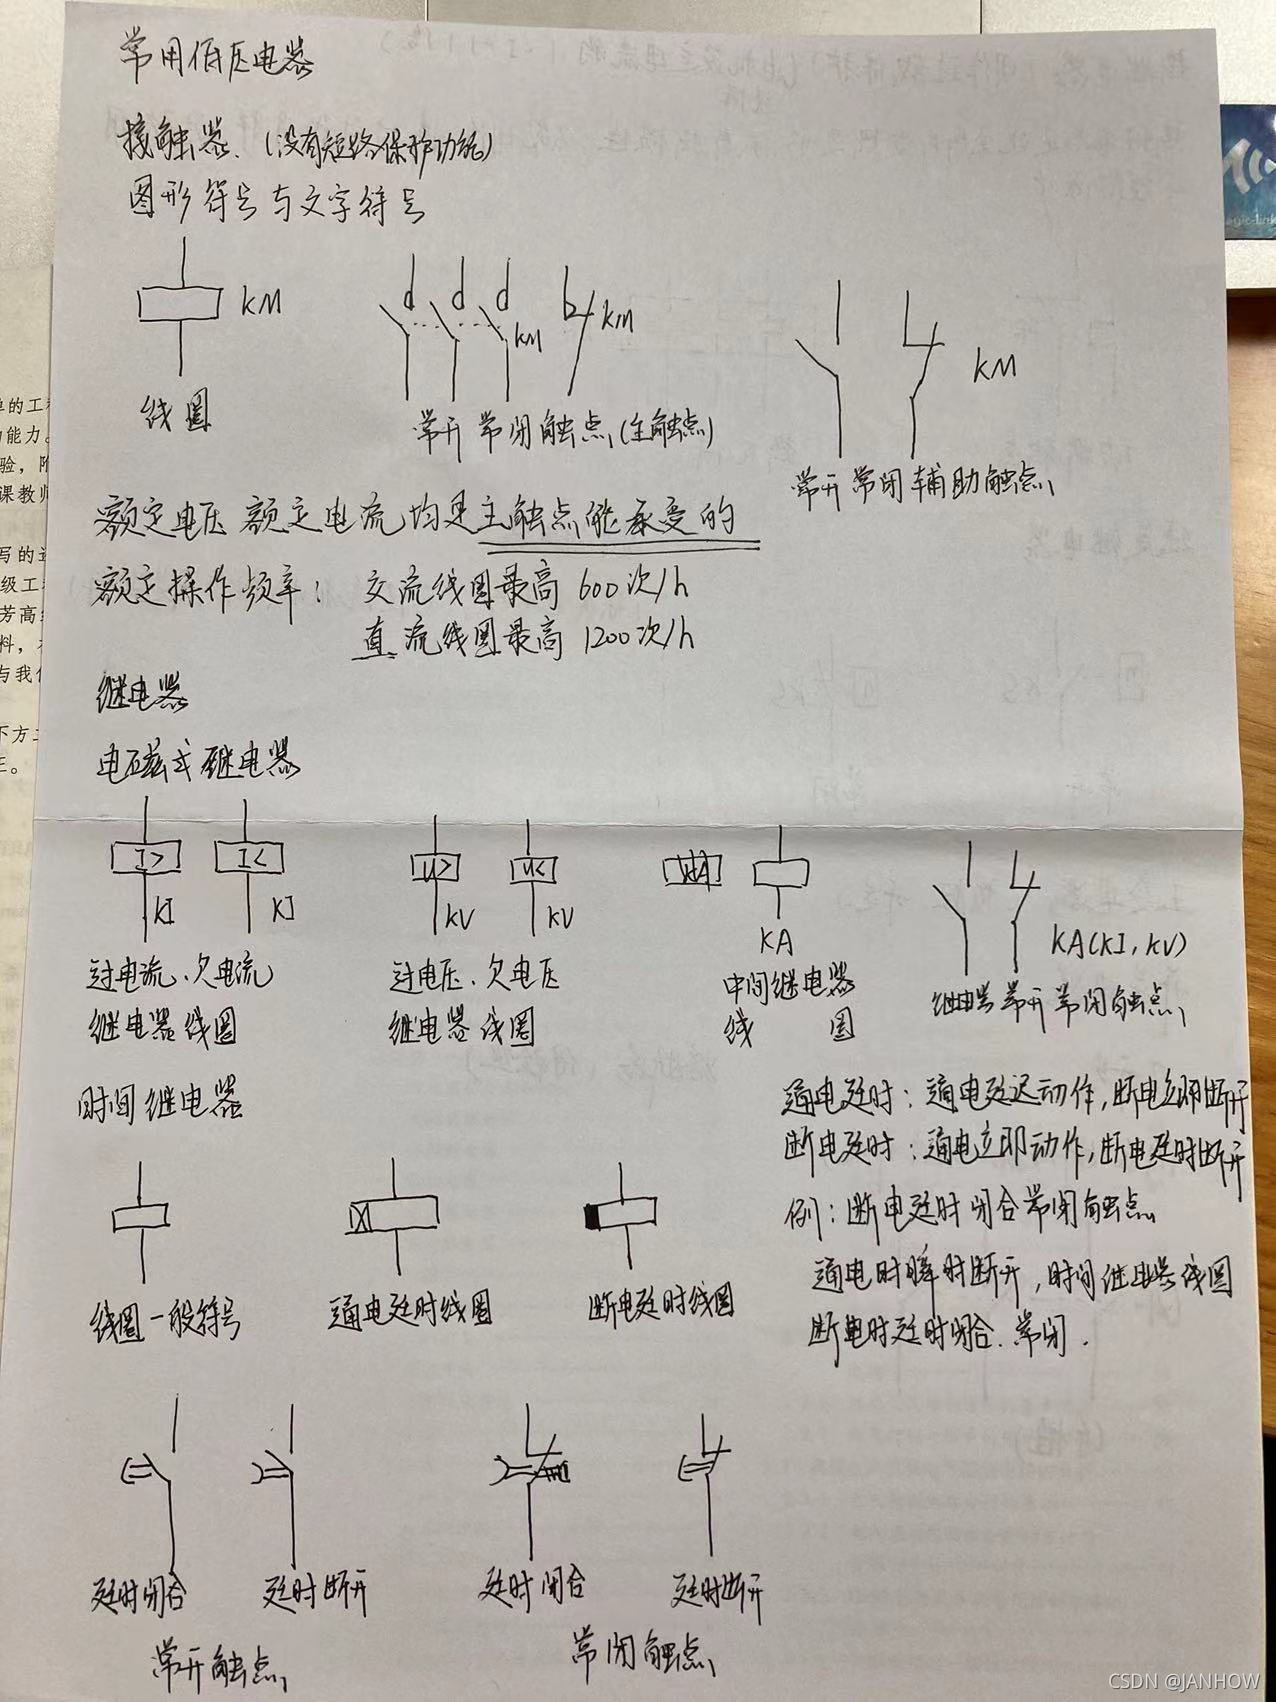 常用低压电器
接触器.(没有短路保护功能)
图形符号与文字符号
KM
KM
KM
KM
线圈
常开常闭触点(主触点)
常开常闭辅助触点
额定电压 额定电流均是主触点能承受的
额定操作频率: 交流线圈最高 600次/h
直流线圈最高 1200次/h
继电器
电磁式继电器
I>
I<
U>
U<
KI
KI
KV
KV
KA
KA(KI,KV)
过电流、欠电流
继电器线圈
过电压、欠电压
继电器线圈
中间继电器
线圈
继电器常开常闭触点
时间继电器
通电延时:通电延迟动作,断电立即断开
断电延时:通电立即动作,断电延时断开
例:断电延时闭合常闭触点
通电时瞬时断开,时间继电器线圈
断电时延时闭合.常闭.
线圈一般符号
通电延时线圈
断电延时线圈
延时闭合
延时断开
延时闭合
延时断开
常开触点
常闭触点
单的工
功能力。
验,阶
课教师
写的
级工
芳高
料,
与我
下方
正。
CSDN @JANHOW